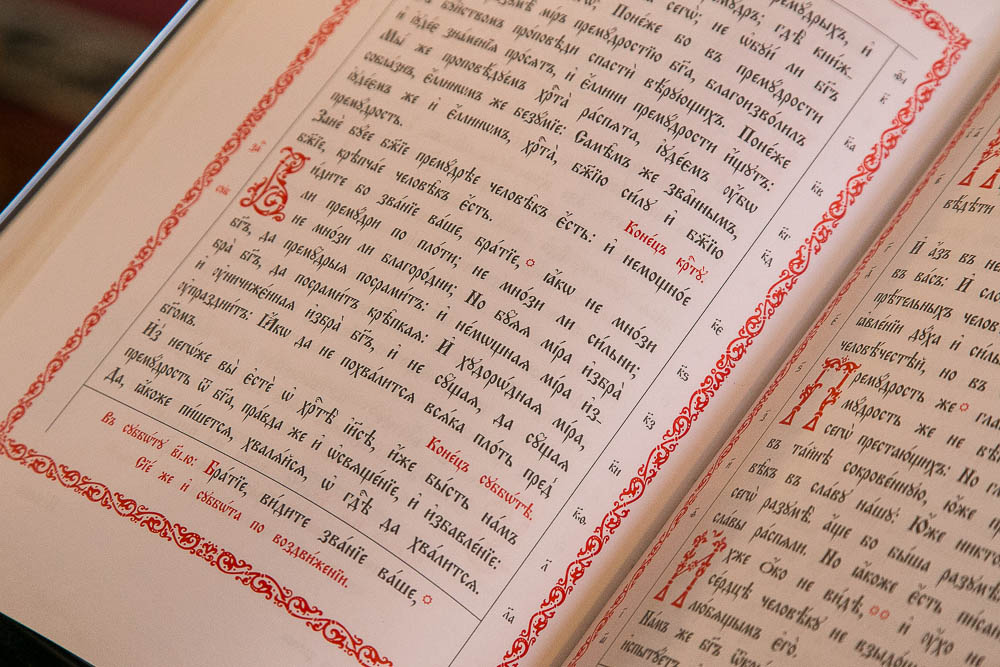 премꙋ́дрыхъ, и҆
мꙋ́дръ; гдѣ̀ кни́ж-
сегѡ̀; не ѡ҆бꙋи́ ли бг҃ъ
Поне́же бо въ премꙋ́дрости
мі́ръ премꙋ́дростїю бг҃а, благоизво́лилъ
бꙋ́йствомъ про́повѣди спастѝ вѣ́рꙋющихъ. Поне́же
и҆ і҆ꙋде́є зна́мєнїѧ про́сѧтъ, и҆ є҆́ллини премꙋ́дрости и҆́щꙋтъ:
Мы́ же проповѣ́дꙋемъ хрⷭ҇та̀ распѧ́та, і҆ꙋде́ємъ ᲂу҆́бѡ
собла́знъ, є҆́ллинѡмъ же безꙋ́мїе: Самѣ̑мъ же зва̑ннымъ,
і҆ꙋде́ємъ же и҆ є҆́ллинѡмъ, хрⷭ҇та̀, бж҃їю си́лꙋ и҆ бж҃їю
премꙋ́дрость.
Занѐ бꙋ́ее бж҃їе премꙋдрѣ́е человѣ̑къ є҆́сть: и҆ немощно́е
бж҃їе, крѣпча́е человѣ̑къ є҆́сть. Коне́цъ крⷭ҇тꙋ̀.
Ви́дите бо зва́нїе ва́ше, бра́тїе, ꙗ҆́кѡ не мно́зи
ли премꙋ́дри по пло́ти; не мно́зи ли си́льни;
не мно́зи ли благоро́дни; Но бꙋ̑ѧѧ мі́ра и҆збра̀
бг҃ъ, да премꙋ̑дрыѧ посрами́тъ: и҆ не́мѡщнаѧ мі́ра и҆з-
бра̀ бг҃ъ, да посрами́тъ крѣ̑пкаѧ: И҆ хꙋдорѡ́днаѧ мі́ра,
и҆ ᲂу҆ничижє́ннаѧ и҆збра̀ бг҃ъ, и҆ не сꙋ̑щаѧ, да сꙋ̑щаѧ
ᲂу҆праздни́тъ: Ꙗ҆́кѡ да не похва́литсѧ всѧ́ка пло́ть пред̾
бг҃омъ. Коне́цъ сꙋббѡ́тѣ.
И҆з̾ негѡ́же вы̀ є҆стѐ ѡ҆ хрⷭ҇тѣ̀ і҆и҃сѣ, и҆́же бы́сть на́мъ
премꙋ́дрость ѿ бг҃а, пра́вда же и҆ ѡ҆свѧще́нїе, и҆ и҆збавле́нїе:
Да, ꙗ҆́коже пи́шетсѧ, хвалѧ́йсѧ, ѡ҆ гдⷭ҇ѣ да хва́литсѧ.
Въ сꙋббѡ́тꙋ в҃і.ю: Бра́тїе, ви́дите зва́нїе ва́ше,
Сїе́ же и҆ сꙋббѡ́та по воздви́женїи.
к҃
к҃а
к҃в
к҃г
к҃д
к҃є
к҃ѕ
к҃з
к҃и
к҃ѳ
л҃
л҃а
вѣ́дѣти
И҆ а҆́зъ въ не
въ ва́съ: И҆ сло
прѣ́тельныхъ челов
ꙗ҆вле́нїи дꙋ́ха и҆ си́лы
человѣ́честѣй, но въ
Премꙋ́дрость же глаг
мꙋ́дрость же не вѣ́к
сегѡ̀ престаю́щихъ: Но гл
въ та́йнѣ сокрове́ннꙋю, ю҆́же пр
вѣ̑къ въ сла́вꙋ на́шꙋ: Ю҆́же никто́
сегѡ̀ разꙋмѣ̀: а҆́ще бо бы́ша разꙋмѣ́
сла́вы распѧ́ли. Но ꙗ҆́коже є҆́сть пи́сан
И҆́хже ѻ҆́ко не ви́дѣ, и҆ ᲂу҆́хо
се́рдце человѣ́кꙋ не взыдо́ша
лю́бѧщымъ є҆го̀.
На́мъ же бг҃ъ ѿкры́
и҆спытꙋ́етъ